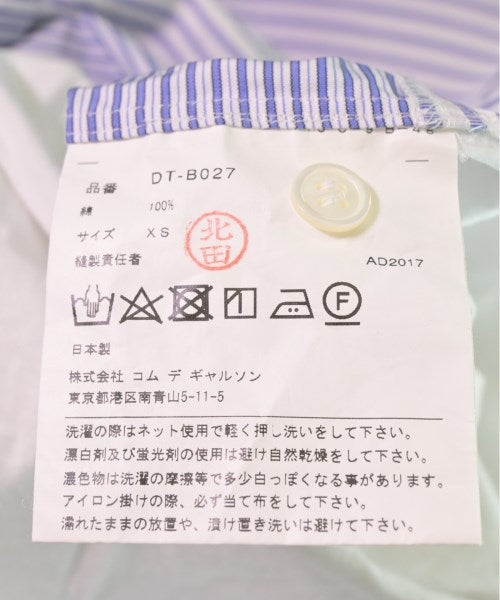 品番 DT-B027
綿 100%
サイズ XS
縫製責任者
北田
AD2017
F
日本製
株式会社 コム デ ギャルソン
東京都港区南青山5-11-5
洗濯の際はネット使用で軽く押し洗いをして下さい。
漂白剤及び蛍光剤の使用は避け自然乾燥をして下さい。
濃色物は洗濯の摩擦等で多少白っぽくなる事があります。
アイロン掛けの際、必ず当て布をして下さい。
濡れたままの放置や、漬け置き洗いは避けて下さい。